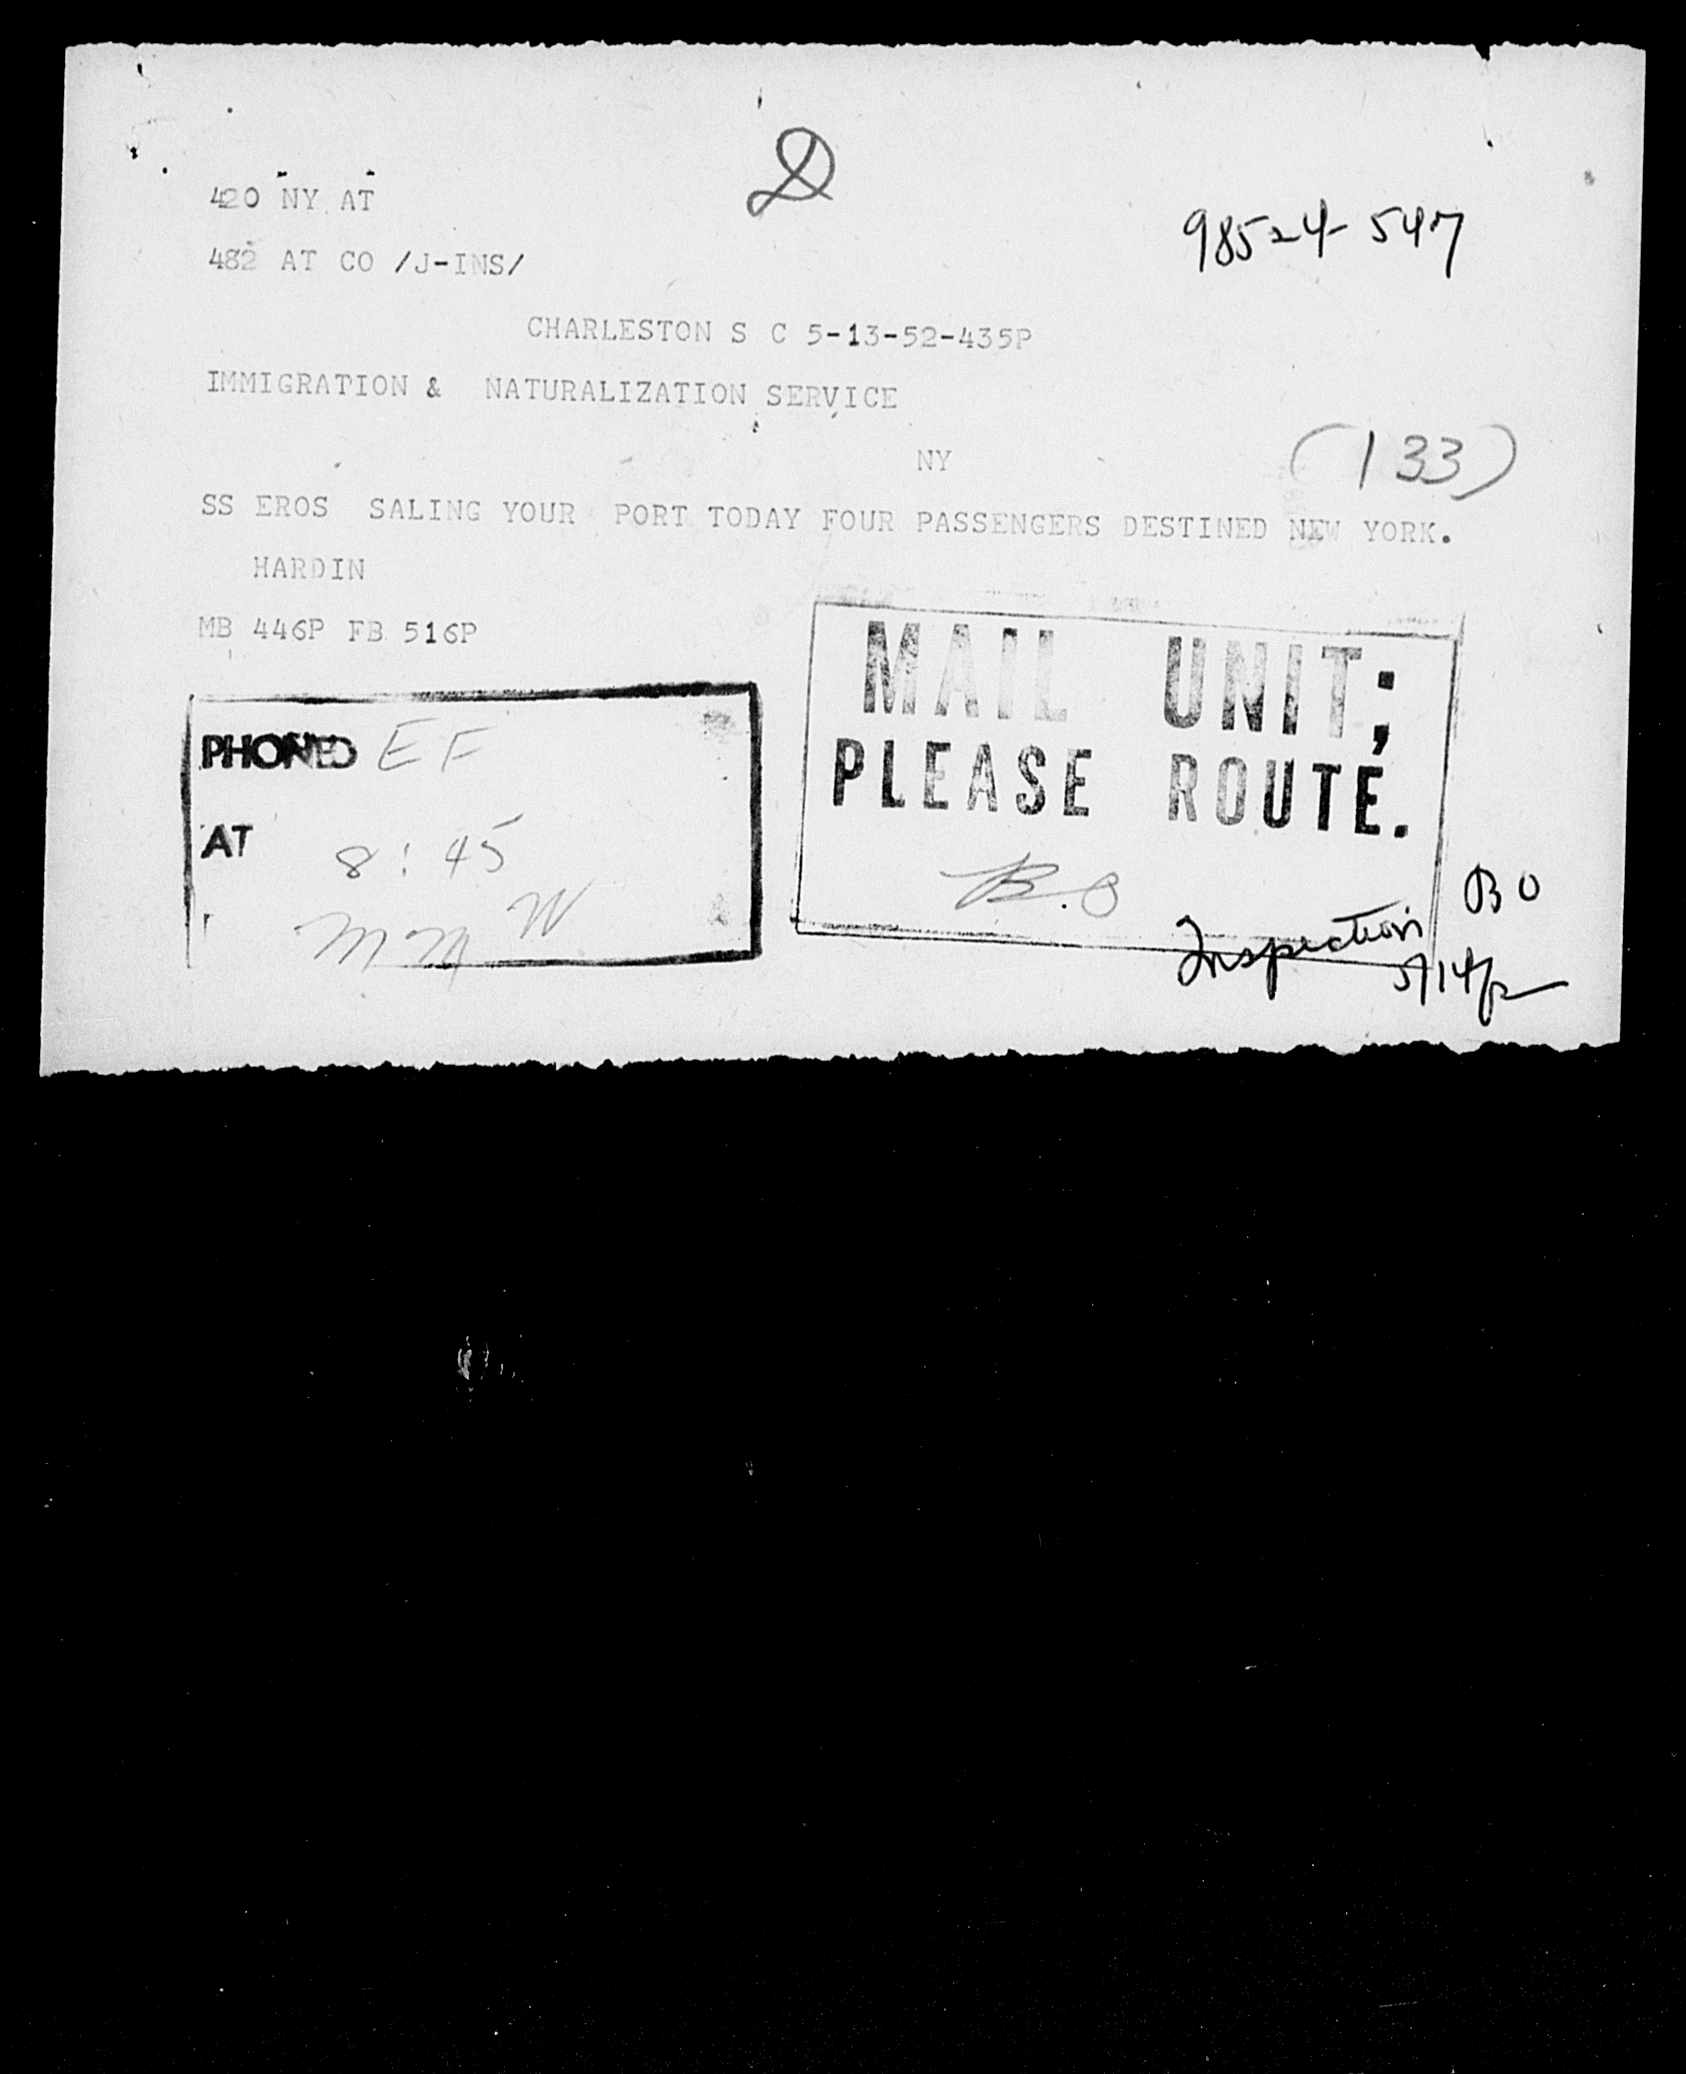 420 NY AT
98524-547
482 AT CO /J-INS/
CHARLESTON S C 5-13-52-435P
IMMIGRATION & NATURALIZATION SERVICE
NY
(133)
SS EROS SALING YOUR PORT TODAY FOUR PASSENGERS DESTINED NEW YORK.
HARDIN
MB 446P FB 516P
MAIL UNIT;
PLEASE ROUTE.
PHONED EF
AT 8:45
B.O
BO
Inspection